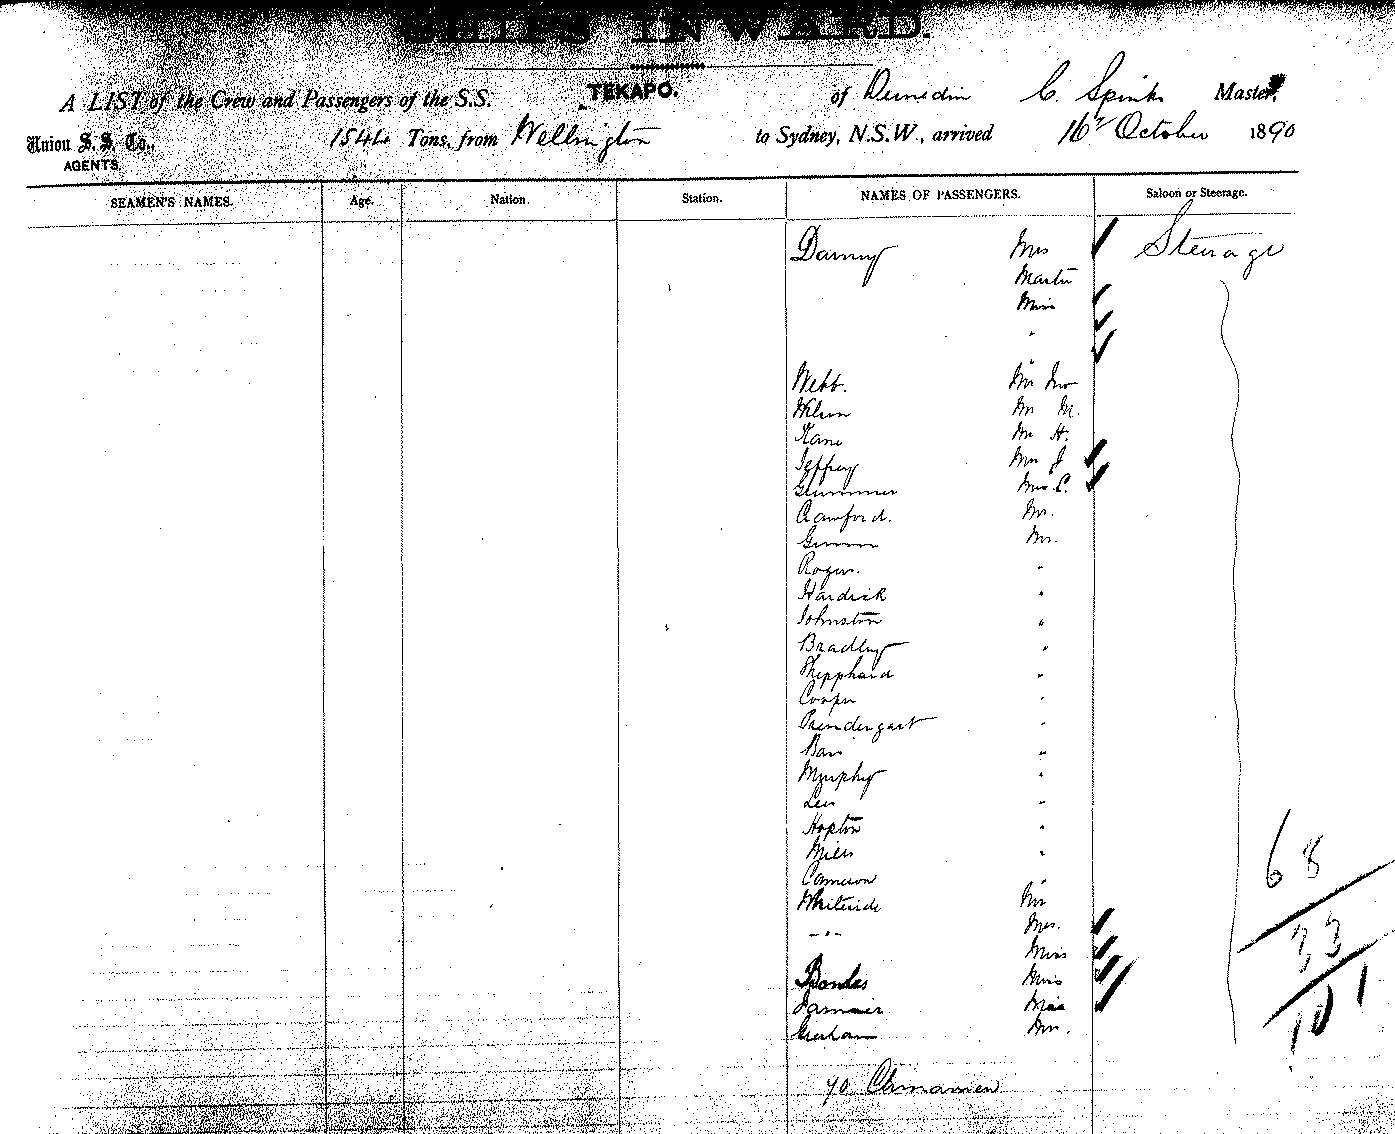 SHIPS INWARD.
A LIST of the Crew and Passengers of the S.S. TEKAPO. of Dunedin C. Spinks Master,
Union S. S. Co., AGENTS 1544 Tons, from Wellington to Sydney, N.S.W., arrived 16th October 1890
SEAMEN'S NAMES. Age. Nation. Station. NAMES OF PASSENGERS. Saloon or Steerage.
Mrs Steerage
Master
Miss
"
"
Webb. Mr Jno
Wilson Mr M.
Kane Mr H.
Jeffrey J
Mrs C.
Crawford. Mr.
Mr.
Rogers. "
Hardick "
Johnston "
Bradley "
Shepphard "
Cooper "
Prendergast "
"
Murphy "
"
Hopton "
"
Cameron "
Whiteside Mr
-"- Mrs.
Miss
Miss
Miss
Graham Mr.
Chinamen
68
33
101